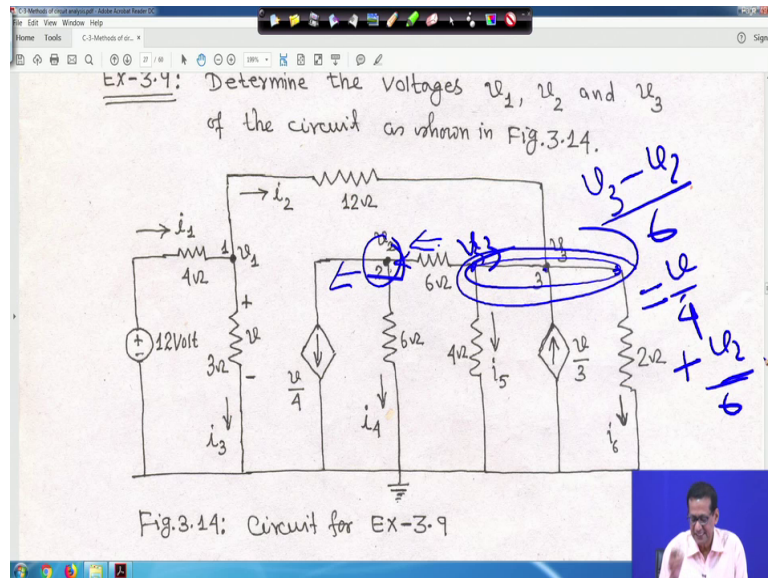 C-3-Methods of circuit analysis.pdf - Adobe Acrobat Reader DC
File Edit View Window Help
Home Tools C-3-Methods of cir... × Sign
27 / 60 199%
EX-3.9: Determine the voltages v₁, v₂ and v₃
of the circuit as shown in Fig.3.14.
v₃ - v₂
6
= v
4
+ v₂
6
→ i₂
12Ω
→ i₁
4Ω
1 v₁
v₂
2
6Ω
v₃
3
+
12Volt
+
-
3Ω
v
-
i₃
v
4
6Ω
i₄
4Ω
i₅
v
3
2Ω
i₆
Fig.3.14: Circuit for EX-3.9